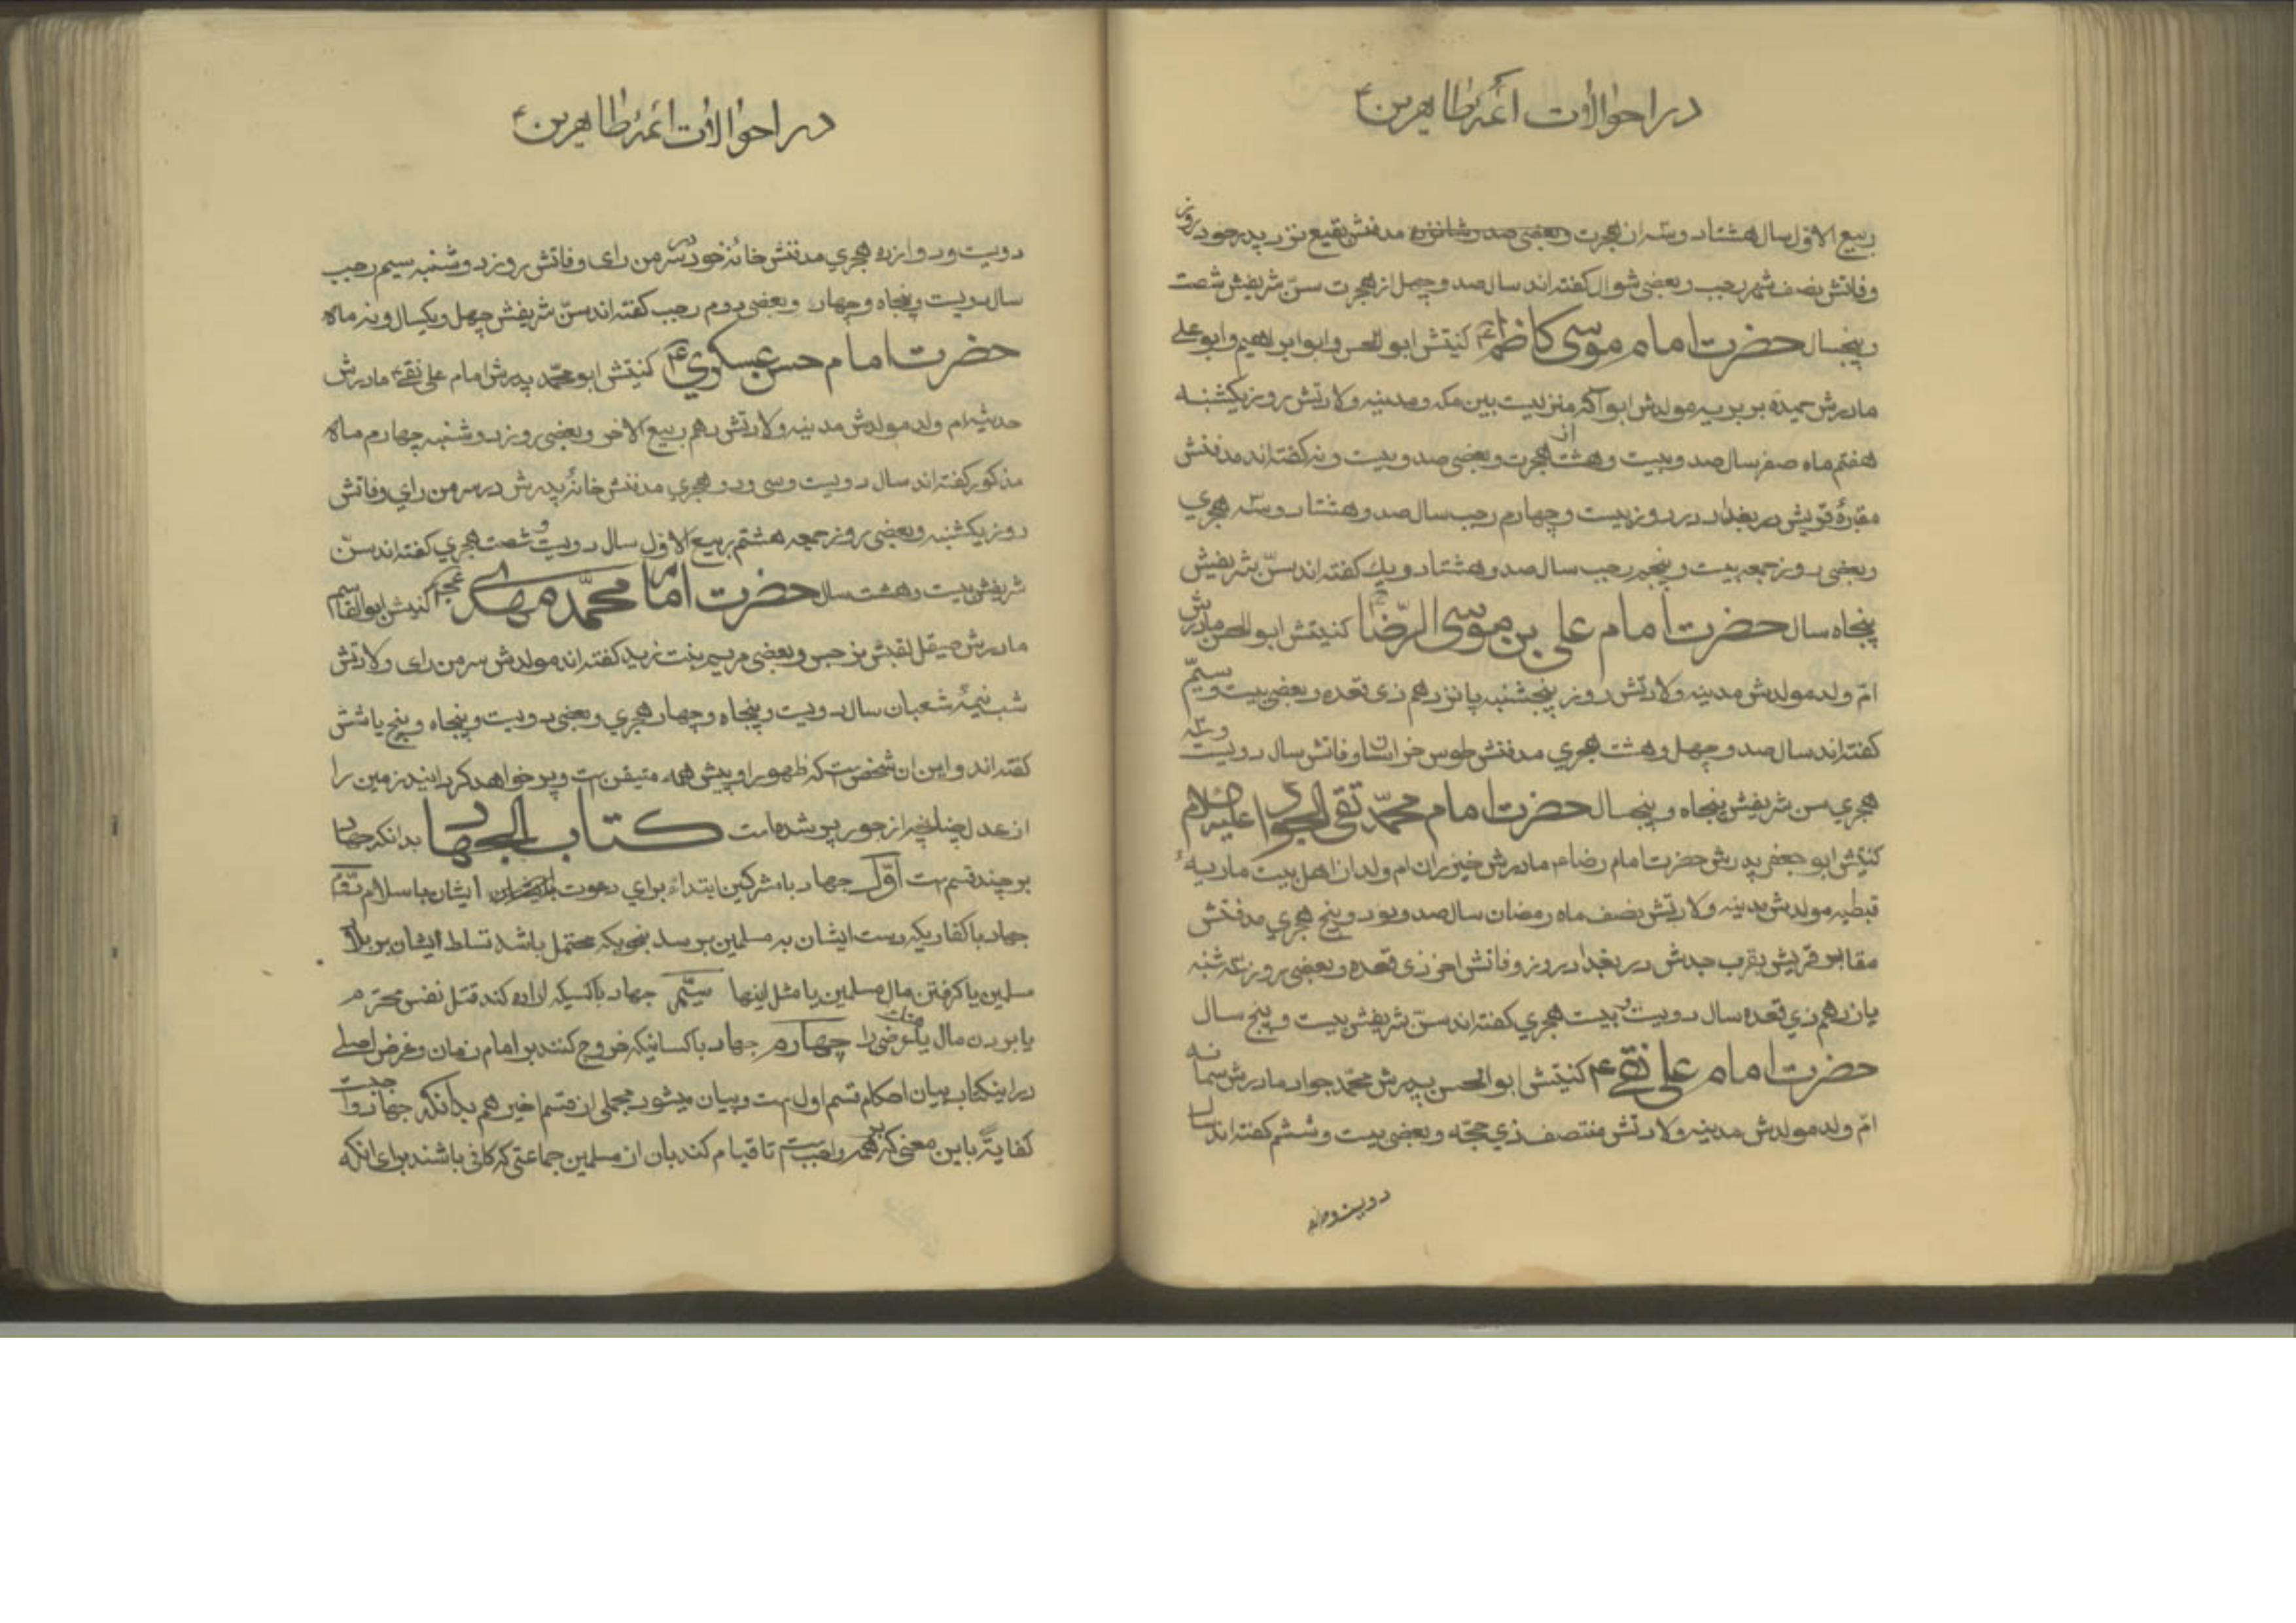 در احوالات ائمه طاهرین ع
ربیع الاول سال هشتاد و سه از هجرت و بعضی صد و شانزده مدفنش بقیع نزد پدر خود روز
وفاتش نصف شهر رجب و بعضی شوال کفته اند سال صد و چهل از هجرت سنّ شریفش شصت
و پنجسال حضرت امام موسی کاظم ع کنیتش ابو الحسن و ابو ابراهیم و ابو علی
مادرش حمیده بربریه مولدش ابوا که منزلیست بین مکه و مدینه ولادتش روز یکشنبه
هفتم ماه صفر سال صد و بیست و هشت از هجرت و بعضی صد و بیست و نه کفته اند مدفنش
مقبرهٔ قریش در بغداد در روز بیست و چهارم رجب سال صد و هشتاد و سه هجری
و بعضی روز جمعه بیست و پنجم رجب سال صد و هشتاد و یك کفته اند سنّ شریفش
پنجاه سال حضرت امام علی بن موسی الرّضا ع کنیتش ابو الحسن مادرش
امّ ولد مولدش مدینه ولادتش روز پنجشنبه پانزدهم ذی قعده و بعضی بیست و سیّم
کفته اند سال صد و چهل و هشت هجری مدفنش طوس خراسان وفاتش سال دویست و سه
هجری سن شریفش پنجاه و پنجسال حضرت امام محمّد تقی الجواد علیه السلام
کنیتش ابو جعفر پدرش حضرت امام رضا ع مادرش خیزران ام ولد از اهل بیت ماریهٔ
قبطیه مولدش مدینه ولادتش نصف ماه رمضان سال صد و نود و پنج هجری مدفنش
مقابر قریش بقرب جدش در بغداد روز وفاتش اخر ذی قعده و بعضی روز سه شنبه
یازدهم ذی قعده سال دویست و بیست هجری کفته اند سنّ شریفش بیست و پنج سال
حضرت امام علی نقی ع کنیتش ابو الحسن پدرش محمّد جواد مادرش سمانه
امّ ولد مولدش مدینه ولادتش منتصف ذی حجّه و بعضی بیست و ششم کفته اند سال
دویست و دوازده
در احوالات ائمه طاهرین ع
دویست و دوازده هجری مدفنش خانهٔ خود در سر من رای وفاتش روز دوشنبه سیم رجب
سال دویست و پنجاه و چهار و بعضی دوم رجب کفته اند سنّ شریفش چهل و یکسال و نه ماه
حضرت امام حسن عسکری ع کنیتش ابو محمّد پدرش امام علی نقی ع مادرش
حدیثه ام ولد مولدش مدینه ولادتش دهم ربیع الاخر و بعضی روز دوشنبه چهارم ماه
مذکور کفته اند سال دویست و سی و دو هجری مدفنش خانهٔ پدرش در سر من رای وفاتش
روز یکشنبه و بعضی روز جمعه هشتم ربیع الاول سال دویست و شصت هجری کفته اند سنّ
شریفش بیست و هشت سال حضرت امام محمّد مهدی عجل کنیتش ابو القاسم
مادرش صیقل لقبش نرجس و بعضی مریم بنت زید کفته اند مولدش سر من رای ولادتش
شب نیمهٔ شعبان سال دویست و پنجاه و چهار هجری و بعضی دویست و پنجاه و پنج یا شش
کفته اند و این ان شخص است که ظهور او پیش همه متیقن است و پر خواهد کردانید زمین را
از عدل چنانچه از جور پر شده است کتاب الجهاد بدانکه جهاد
بر چند قسم است اوّل جهاد با مشرکین ابتداءً برای دعوت ایشان باسلام دوّم
جهاد با کفاریکه دست ایشان به مسلمین برسد بنحویکه محتمل باشد تسلط ایشان بر بلاد
مسلمین یا کرفتن مال مسلمین یا مثل اینها سیّم جهاد با کسیکه اراده کند قتل نفس محترم
یا بردن مال یا عرضی را چهارم جهاد با کسانیکه خروج کنند بر امام زمان و غرض اصلی
در اینکتاب بیان احکام قسم اول است و بیان میشود مجملی از قسم اخیر هم بدانکه جهاد واجبست
کفایةً باین معنی که بر همه واجبست تا قیام کند بان از مسلمین جماعتی که کافی باشند برای انکه